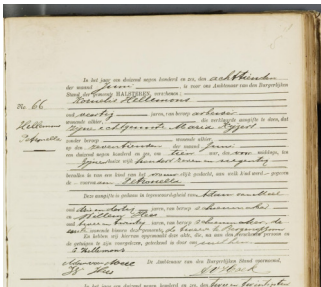 In het jaar een duizend negen honderd en zes, den achttienden
der maand Juni, is voor ons Ambtenaar van den Burgerlijken
Stand der Gemeente HALSTEREN, verschenen:
No 66.
Kornelis Hellemons
oud veertig jaren, van beroep arbeider
Hellemons
Petronella
wonende alhier, die verklaarde aangifte te doen, dat
zijne echtgenoote Maria
zonder beroep wonende alhier,
op den zeventienden der maand Juni
een duizend negen honderd en zes, om uren, des middags, ten
zijnen huize wijk honderd zeven en negentig
bevallen is van een kind van het vrouwelijk geslacht, aan welk kind werd gegeven
de voornaam Petronella
Deze aangifte is gedaan in tegenwoordigheid van Adam van Meel
oud drie en dertig jaren, van beroep schoenmaker en
Willem Hees
oud twee en twintig jaren, van beroep schoenmaker, de
eerste wonende binnen deze gemeente, de tweede te Bergen op Zoom
En hebben wij hiervan opgemaakt deze akte, die, na aan den comparant en
de getuigen te zijn voorgelezen, geteekend is door ons met hen
C. Hellemons
De Ambtenaar van den Burgerlijken Stand voornoemd,
W. Hees
In het jaar een duizend negen honderd en zes, den twee en twintigsten